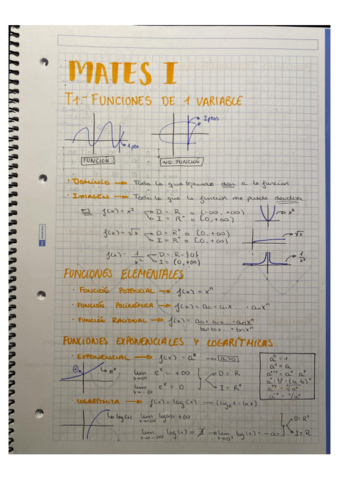 MATES I
T1 - FUNCIONES DE 1 VARIABLE
FUNCIÓN
NO FUNCIÓN
· DOMINIO → Todo lo que podemos dar a la función
· IMAGEN → Todo lo que la función me puede devolver
f(x) = x² → D = R = (-∞, +∞)
→ I = R⁺ = [0, +∞)
x²
f(x) = √x → D = R⁺ = [0, +∞)
→ I = R⁺ = [0, +∞)
√x
f(x) = 1/x² → D = R - {0}
→ I = (0, +∞)
1/x²
FUNCIONES ELEMENTALES
· FUNCIÓN POTENCIAL → f(x) = xⁿ
· FUNCIÓN POLINÓMICA → f(x) = a₀ + a₁x ... + aₙxⁿ
· FUNCIÓN RACIONAL → f(x) =
FUNCIONES EXPONENCIALES Y LOGARÍTMICAS
· EXPONENCIAL → f(x) = aˣ → a>0
eˣ
lim eˣ = +∞ → D = R
lim eˣ = 0 → I = R⁺
a⁰ = 1
a¹ = a
· LOGARÍTMICA → f(x) = log(x)
log(x)
lim log(x) = +∞
D = R⁺
lim log(x) = ∄ → lim log(x) = -∞
I = R